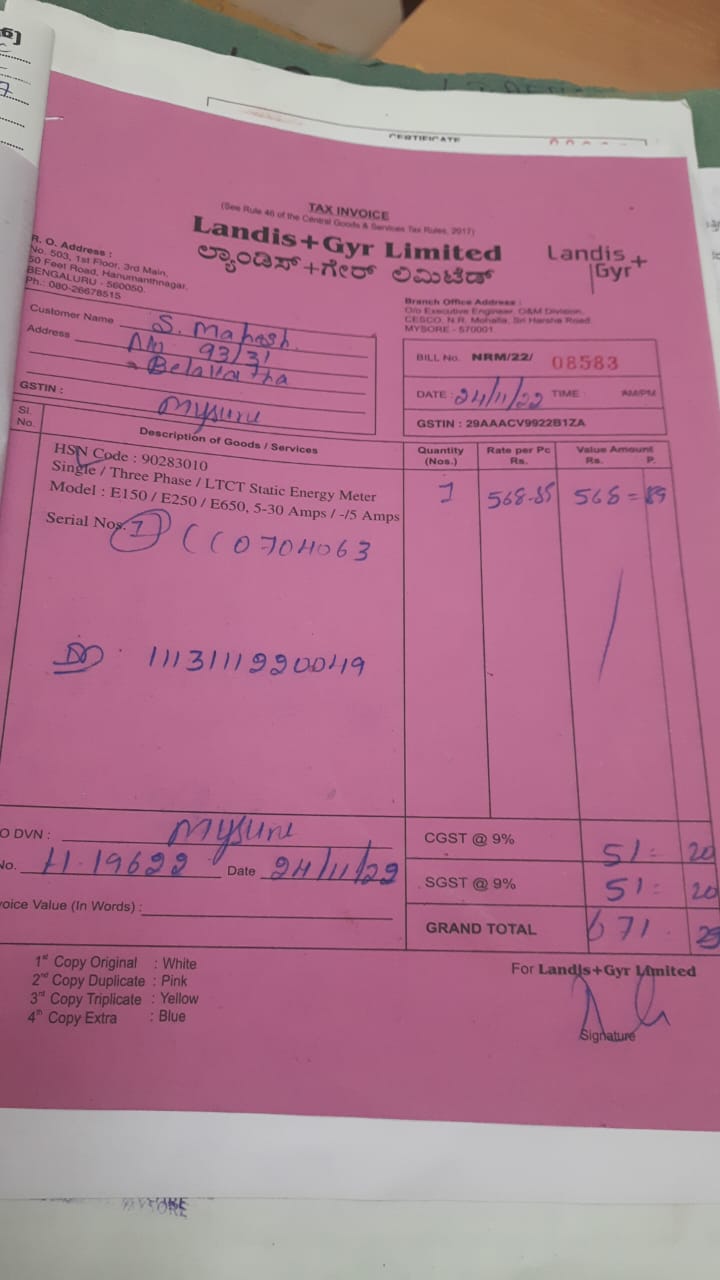 CERTIFICATE
TAX INVOICE
(See Rule 46 of the Central Goods & Services Tax Rules, 2017)
Landis+Gyr Limited
ಲ್ಯಾಂಡಿಸ್+ಗೇರ್ ಲಿಮಿಟೆಡ್
Landis+
Gyr
R. O. Address :
No. 503, 1st Floor, 3rd Main,
50 Feet Road, Hanumanthnagar,
BENGALURU - 560050.
Ph.: 080-26678515
Branch Office Address :
O/o Executive Engineer, O&M Division,
CESCO, N.R. Mohalla, Sri Harsha Road
MYSORE - 570001
Customer Name S. Mahesh
Address No 93/31
Belavatha
GSTIN : Mysuru
BILL No. NRM/22/ 08583
DATE : 24/11/22 TIME : AM/PM
GSTIN : 29AAACV9922B1ZA
Sl. No. Description of Goods / Services Quantity (Nos.) Rate per Pc Rs. Value Amount Rs. P.
HSN Code : 90283010
Single / Three Phase / LTCT Static Energy Meter
Model : E150 / E250 / E650, 5-30 Amps / -/5 Amps 1 568.85 568=
Serial Nos. 1 CC0704063
1113111220049
O DVN : Mysuru
No. 19622 Date 24/11/22
oice Value (In Words) :
CGST @ 9% 51= 20
SGST @ 9% 51= 20
GRAND TOTAL 671. 25
1st Copy Original : White
2nd Copy Duplicate : Pink
3rd Copy Triplicate : Yellow
4th Copy Extra : Blue
For Landis+Gyr Limited
Signature